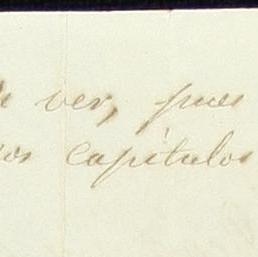 ver, pues
capítulos